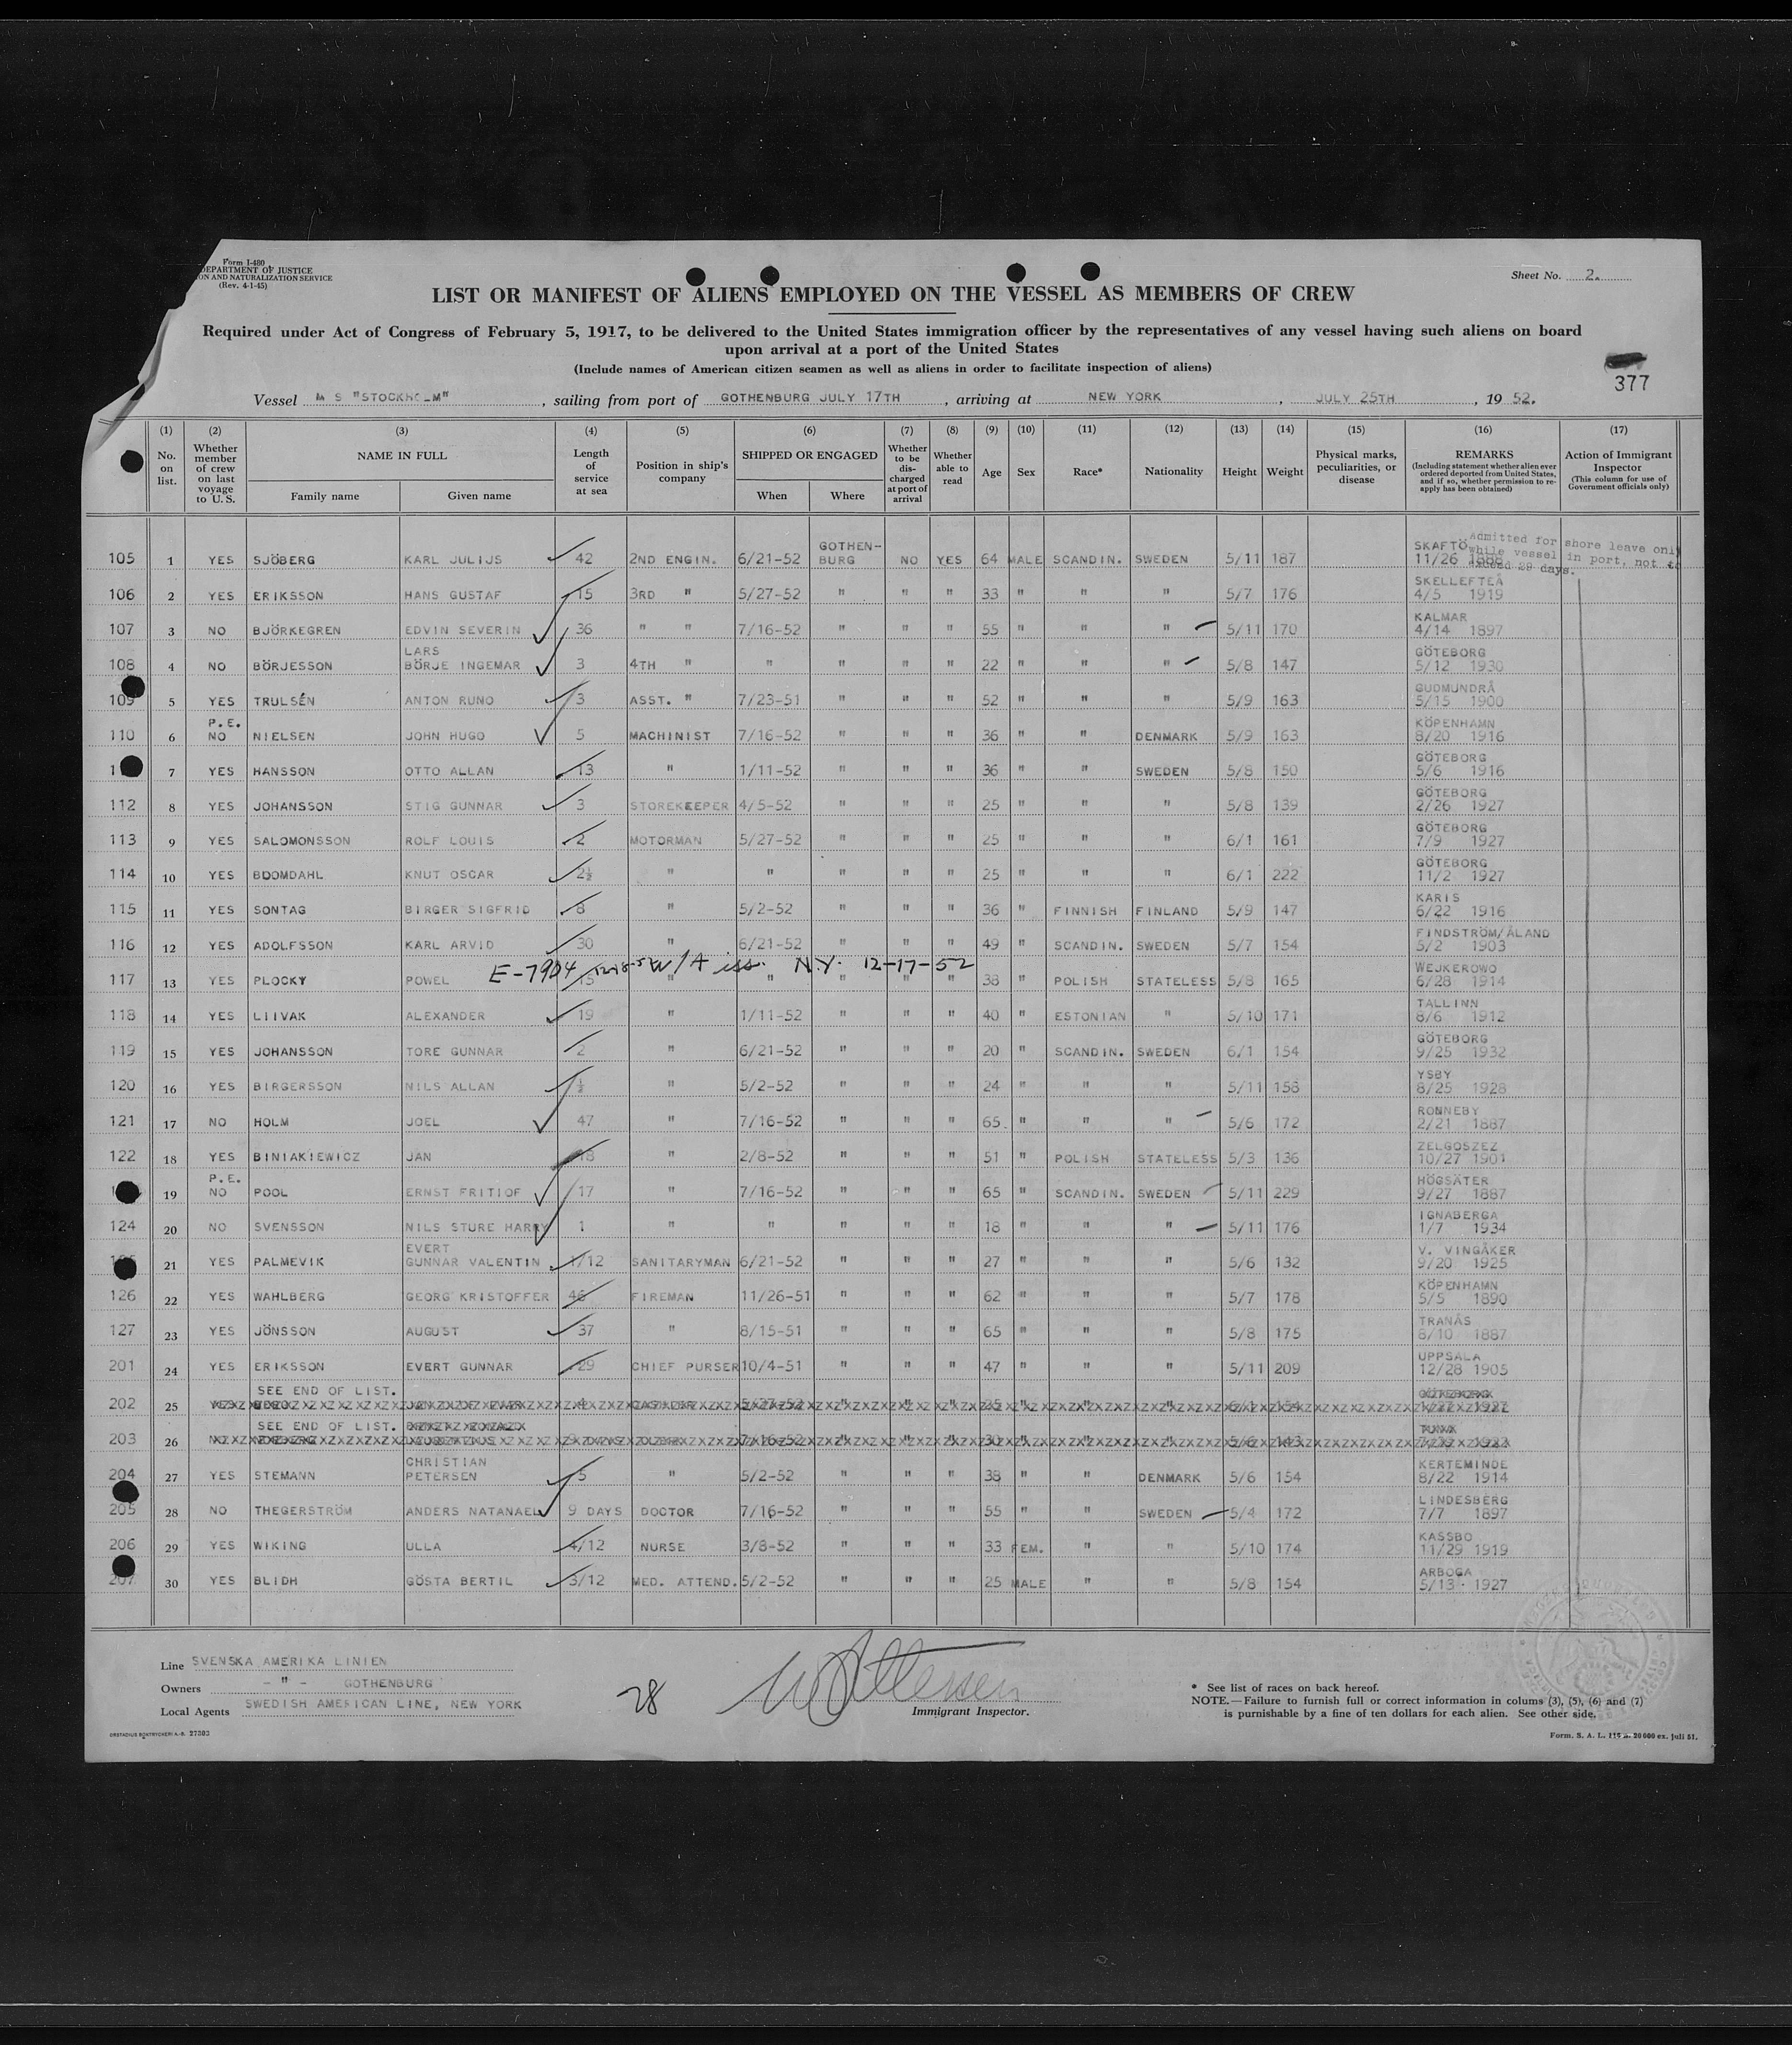 Form I-480
DEPARTMENT OF JUSTICE
ON AND NATURALIZATION SERVICE
(Rev. 4-1-45)
Sheet No. 2.
LIST OR MANIFEST OF ALIENS EMPLOYED ON THE VESSEL AS MEMBERS OF CREW
Required under Act of Congress of February 5, 1917, to be delivered to the United States immigration officer by the representatives of any vessel having such aliens on board
upon arrival at a port of the United States
(Include names of American citizen seamen as well as aliens in order to facilitate inspection of aliens)
377
Vessel M S "STOCKHOLM", sailing from port of GOTHENBURG JULY 17TH, arriving at NEW YORK, JULY 25TH, 19 52.
(1) (2) (3) (4) (5) (6) (7) (8) (9) (10) (11) (12) (13) (14) (15) (16) (17)
No. on list. Whether member of crew on last voyage to U. S. NAME IN FULL Family name Given name Length of service at sea Position in ship's company SHIPPED OR ENGAGED When Where Whether to be discharged at port of arrival Whether able to read Age Sex Race* Nationality Height Weight Physical marks, peculiarities, or disease REMARKS (Including statement whether alien ever ordered deported from United States, and if so, whether permission to re-apply has been obtained) Action of Immigrant Inspector (This column for use of Government officials only)
Admitted for shore leave only
while vessel in port, not to
exceed 29 days.
GOTHEN- SKAFTÖ
105 1 YES SJÖBERG KARL JULIJS 42 2ND ENGIN. 6/21-52 BURG NO YES 64 MALE SCANDIN. SWEDEN 5/11 187 11/26
SKELLEFTEÅ
106 2 YES ERIKSSON HANS GUSTAF 15 3RD " 5/27-52 " " " 33 " " " 5/7 176 4/5 1919
KALMAR
107 3 NO BJÖRKEGREN EDVIN SEVERIN 36 " " 7/16-52 " " " 55 " " " 5/11 170 4/14 1897
LARS GÖTEBORG
108 4 NO BÖRJESSON BÖRJE INGEMAR 3 4TH " " " " " 22 " " " 5/8 147 5/12 1930
GUDMUNDRÅ
109 5 YES TRULSÉN ANTON RUNO 3 ASST. " 7/23-51 " " " 52 " " " 5/9 163 5/15 1900
P.E. KÖPENHAMN
110 6 NO NIELSEN JOHN HUGO 5 MACHINIST 7/16-52 " " " 36 " " DENMARK 5/9 163 8/20 1916
GÖTEBORG
7 YES HANSSON OTTO ALLAN 13 " 1/11-52 " " " 36 " " SWEDEN 5/8 150 5/6 1916
GÖTEBORG
112 8 YES JOHANSSON STIG GUNNAR 3 STOREKEEPER 4/5-52 " " " 25 " " " 5/8 139 2/26 1927
GÖTEBORG
113 9 YES SALOMONSSON ROLF LOUIS 2 MOTORMAN 5/27-52 " " " 25 " " " 6/1 161 7/9 1927
GÖTEBORG
114 10 YES BOOMDAHL KNUT OSCAR 2½ " " " " " 25 " " " 6/1 222 11/2 1927
KARIS
115 11 YES SONTAG BIRGER SIGFRID 8 " 5/2-52 " " " 36 " FINNISH FINLAND 5/9 147 6/22 1916
FINDSTRÖM/ÅLAND
116 12 YES ADOLFSSON KARL ARVID 30 " 6/21-52 " " " 49 " SCANDIN. SWEDEN 5/7 154 5/2 1903
E-7904 12-18-5 W/A iss. N.Y. 12-17-52 WEJKEROWO
117 13 YES PLOCKY POWEL 15 " " " " " 38 " POLISH STATELESS 5/8 165 6/28 1914
TALLINN
118 14 YES LIIVAK ALEXANDER 19 " 1/11-52 " " " 40 " ESTONIAN " 5/10 171 8/6 1912
GÖTEBORG
119 15 YES JOHANSSON TORE GUNNAR 2 " 6/21-52 " " " 20 " SCANDIN. SWEDEN 6/1 154 9/25 1932
YSBY
120 16 YES BIRGERSSON NILS ALLAN ½ " 5/2-52 " " " 24 " " " 5/11 158 8/25 1928
RONNEBY
121 17 NO HOLM JOEL 47 " 7/16-52 " " " 65 " " " 5/6 172 2/21 1887
ZELGOSZEZ
122 18 YES BINIAKIEWICZ JAN 18 " 2/8-52 " " " 51 " POLISH STATELESS 5/3 136 10/27 1901
P.E. HÖGSÄTER
19 NO POOL ERNST FRITIOF 17 " 7/16-52 " " " 65 " SCANDIN. SWEDEN 5/11 229 9/27 1887
IGNABERGA
124 20 NO SVENSSON NILS STURE HARRY 1 " " " " " 18 " " " 5/11 176 1/7 1934
EVERT V. VINGÅKER
21 YES PALMEVIK GUNNAR VALENTIN 1/12 SANITARYMAN 6/21-52 " " " 27 " " " 5/6 132 9/20 1925
KÖPENHAMN
126 22 YES WAHLBERG GEORG KRISTOFFER 46 FIREMAN 11/26-51 " " " 62 " " " 5/7 178 5/5 1890
TRANÅS
127 23 YES JÖNSSON AUGUST 37 " 8/15-51 " " " 65 " " " 5/8 175 8/10 1887
UPPSALA
201 24 YES ERIKSSON EVERT GUNNAR 29 CHIEF PURSER 10/4-51 " " " 47 " " " 5/11 209 12/28 1905
SEE END OF LIST.
202 25
SEE END OF LIST.
203 26
CHRISTIAN KERTEMINDE
204 27 YES STEMANN PETERSEN 5 " 5/2-52 " " " 38 " " DENMARK 5/6 154 8/22 1914
LINDESBERG
205 28 NO THEGERSTRÖM ANDERS NATANAEL 9 DAYS DOCTOR 7/16-52 " " " 55 " " SWEDEN 5/4 172 7/7 1897
KASSBO
206 29 YES WIKING ULLA 4/12 NURSE 3/8-52 " " " 33 FEM. " " 5/10 174 11/29 1919
ARBOGA
207 30 YES BLIDH GÖSTA BERTIL 3/12 MED. ATTEND. 5/2-52 " " " 25 MALE " " 5/8 154 5/13 1927
Line SVENSKA AMERIKA LINIEN
Owners - " - GOTHENBURG
Local Agents SWEDISH AMERICAN LINE, NEW YORK
28
Immigrant Inspector.
* See list of races on back hereof.
NOTE.—Failure to furnish full or correct information in colums (3), (5), (6) and (7)
is punishable by a fine of ten dollars for each alien. See other side.
ORSTADIUS BOKTRYCKERI A.-B. 27303
Form. S. A. L. 20000 ex. juli 51.